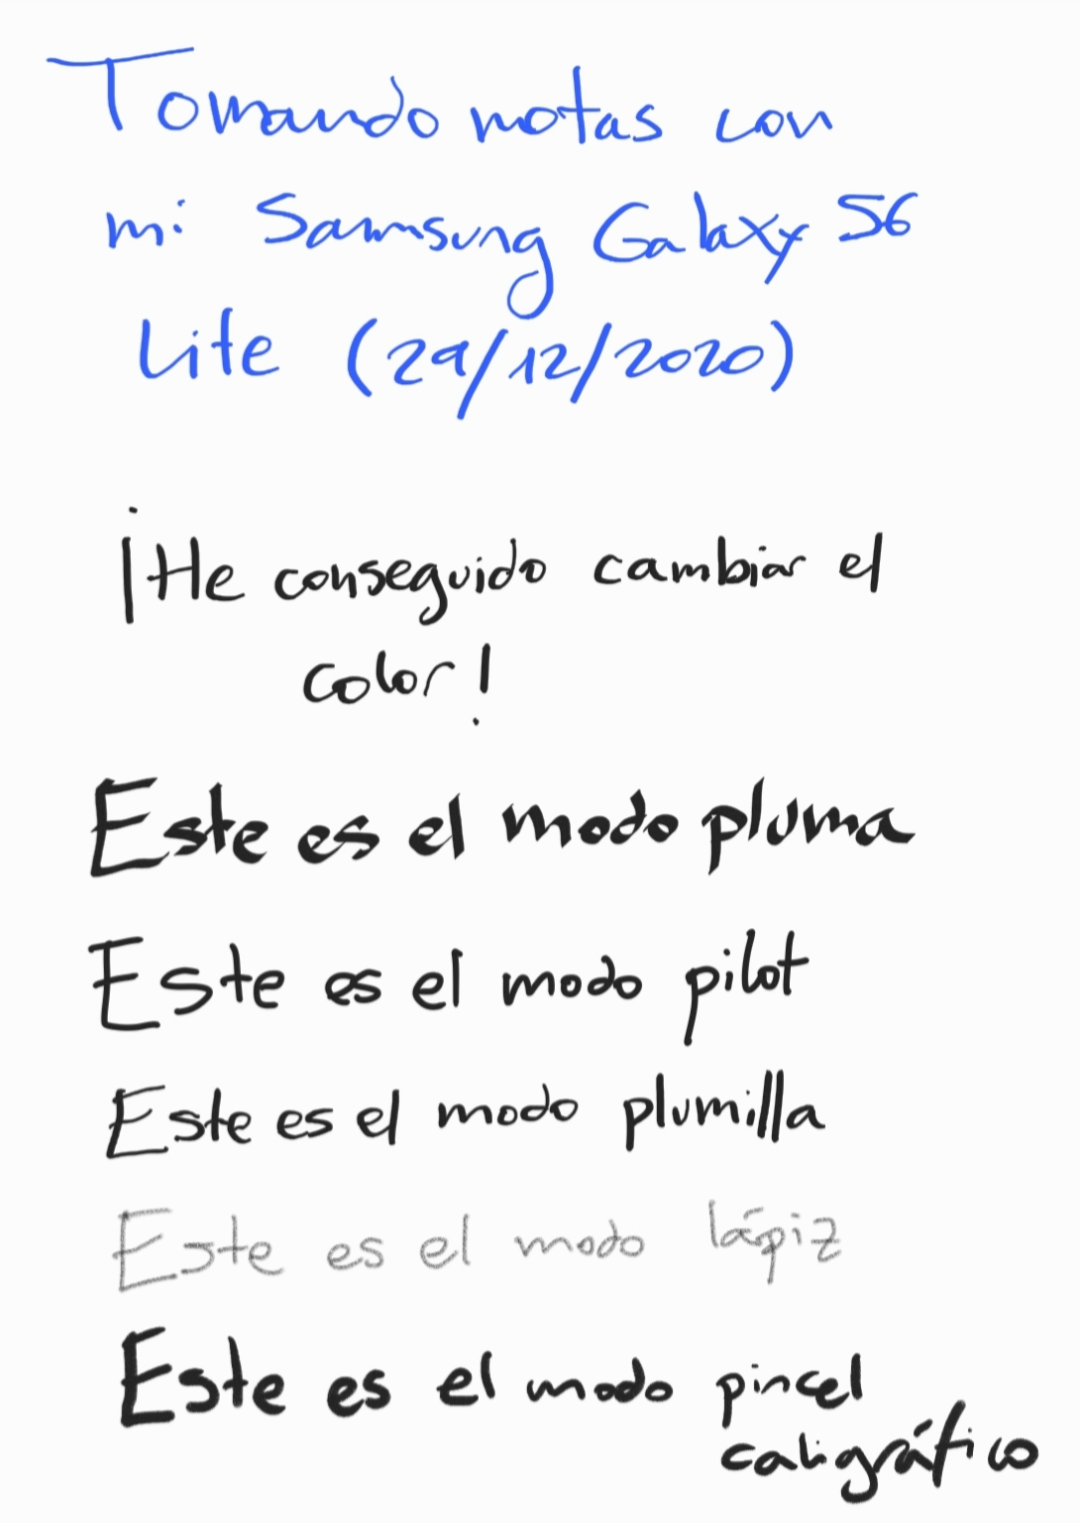 Tomando notas con
mi Samsung Galaxy S6
Lite (29/12/2020)
¡He conseguido cambiar el
color!
Este es el modo pluma
Este es el modo pilot
Este es el modo plumilla
Este es el modo lápiz
Este es el modo pincel
caligráfico